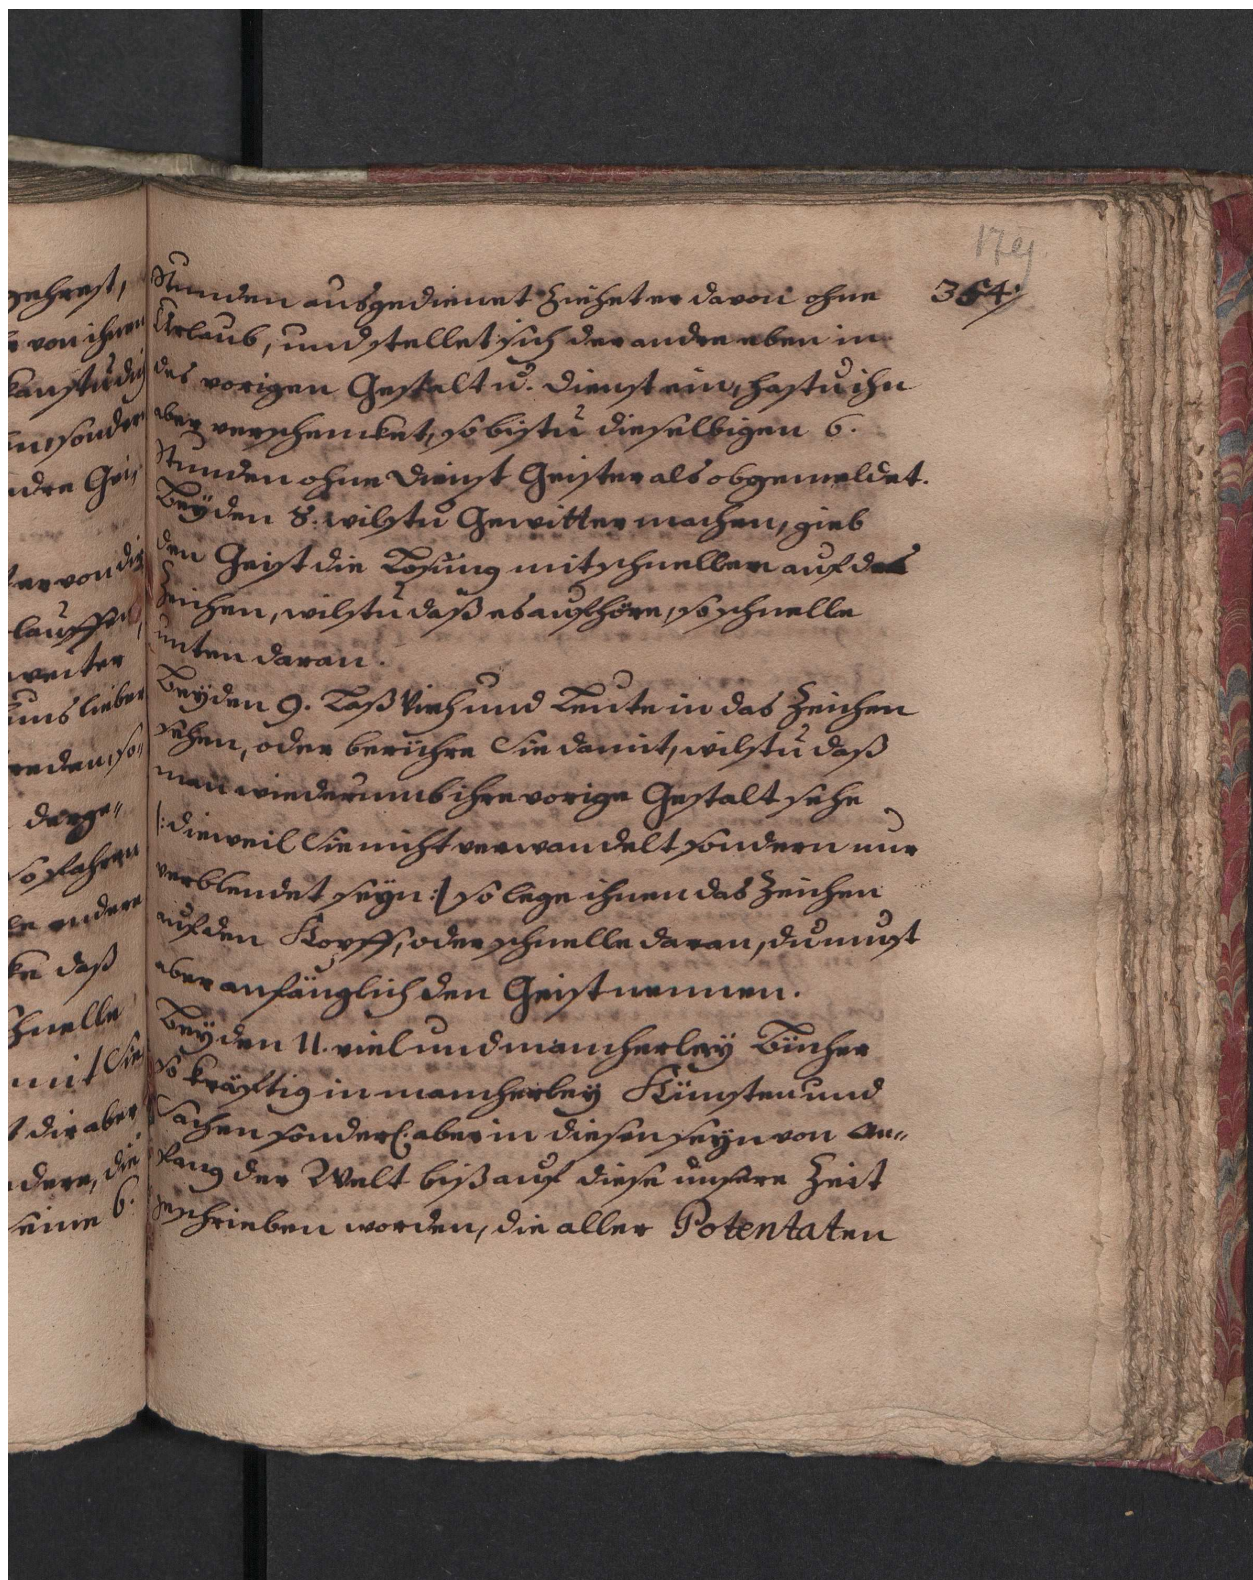 gehrest,
von ihnen
kanstu dich
sonder
andre Geis
er von dir
lauffen,
weiter
uns lieber
reden, so
derge=
so fahren
le andere
ke daß
schnelle
mit Sie
t dir aber
dere, die
seine 6.
179
354.
Stunden ausgedienet ziehet er davon ohne
Urlaub, und stellet sich der andre eben in
des vorigen Gestalt u. dienst ein, hastu ihn
aber verschencket, so bistu dieselbigen 6.
Stunden ohne Dienst Geister als obgemeldet.
Bey den 8. wilstu Gewitter machen, gieb
den Geist die Losung mit schnellen auf das
Zeichen, wilstu daß es aufhöre, so schnelle
unten daran.
Bey den 9. Laß Vieh und Leute in das Zeichen
sehen, oder berühre Sie damit, wilstu daß
man wiederumb ihre vorige Gestalt sehe
/: dieweil Sie nicht verwandelt sondern nur
verblendet seyn :/ so lege ihnen das Zeichen
auf den Kopff, oder schnelle daran, du must
aber anfänglich den Geist nennen.
Bey den 11. viel und mancherley Bücher
so kräftig in mancherley Künsten und
Sachen sonderl. aber in diesen seyn von An=
fang der Welt biß auf diese unsere Zeit
geschrieben worden, die aller Potentaten